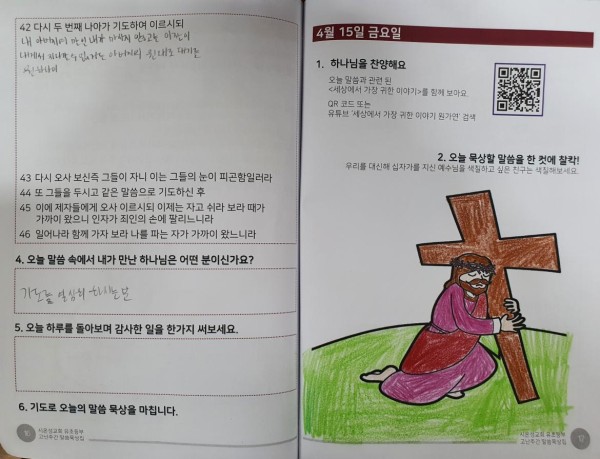 42 다시 두 번째 나아가 기도하여 이르시되
내 아버지여 만일 내가 마시지 않고는 이 잔이
내게서 지나갈 수 없거든 아버지의 원대로 되기를
43 다시 오사 보신즉 그들이 자니 이는 그들의 눈이 피곤함일러라
44 또 그들을 두시고 같은 말씀으로 기도하신 후
45 이에 제자들에게 오사 이르시되 이제는 자고 쉬라 보라 때가
가까이 왔으니 인자가 죄인의 손에 팔리느니라
46 일어나라 함께 가자 보라 나를 파는 자가 가까이 왔느니라
4. 오늘 말씀 속에서 내가 만난 하나님은 어떤 분이신가요?
기도를 열심히 하시는 분
5. 오늘 하루를 돌아보며 감사한 일을 한가지 써보세요.
6. 기도로 오늘의 말씀 묵상을 마칩니다.
시온성교회 유초등부
고난주간 말씀묵상집
4월 15일 금요일
1. 하나님을 찬양해요
오늘 말씀과 관련 된
<세상에서 가장 귀한 이야기>를 함께 보아요.
QR 코드 또는
유튜브 '세상에서 가장 귀한 이야기 원가연' 검색
2. 오늘 묵상할 말씀을 한 컷에 찰칵!
우리를 대신해 십자가를 지신 예수님을 색칠하고 싶은 친구는 색칠해보세요.
시온성교회 유초등부
고난주간 말씀묵상집